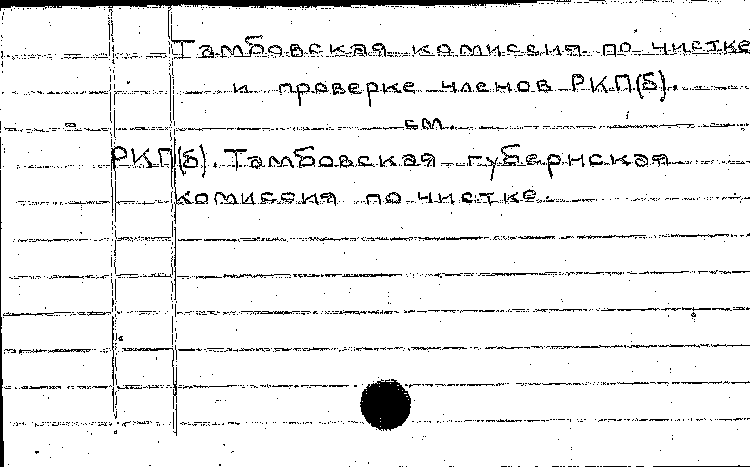 Тамбовская комиссия по чистке
и проверке членов РКП(б).
см.
РКП(б). Тамбовская губернская
комиссия по чистке.